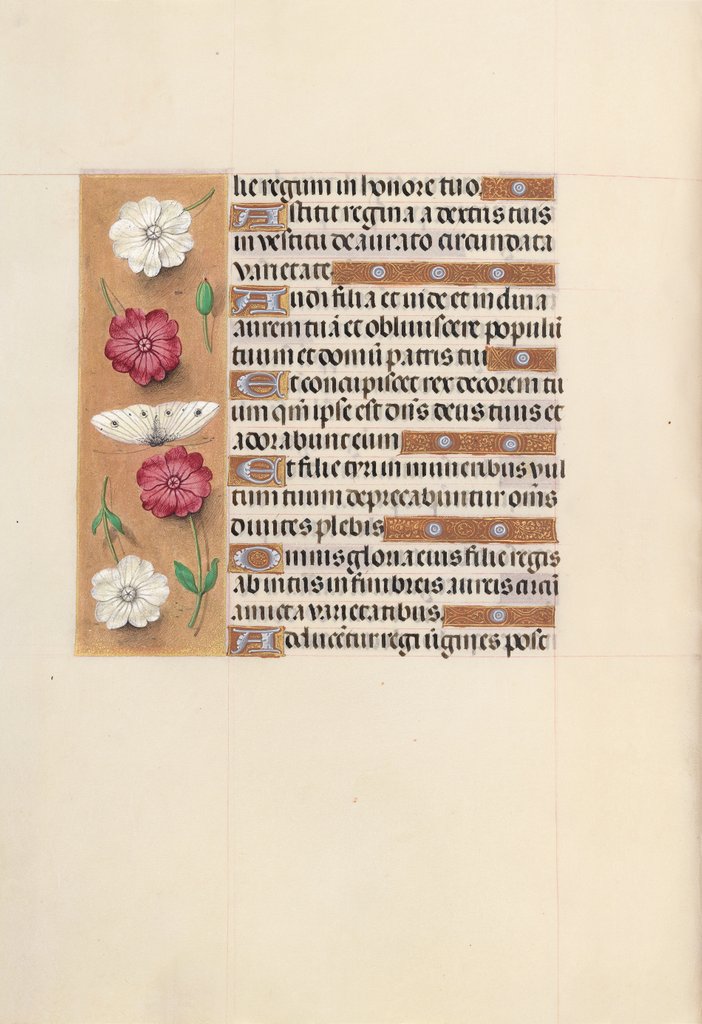 lie regum in honore tuo.
Astitit regina a dextris tuis
in vestitu deaurato circundata
varietate.
Audi filia et vide et inclina
aurem tuā et obliviscere populū
tuum et domū patris tui
Et concupiscet rex decorem tu
um qm̄ ipse est dn̄s deus tuus et
adorabunt eum
Et filie tyri in muneribus vul
tum tuum deprecabuntur om̄s
divites plebis
Omnis gloria eius filie regis
ab intus in fimbreis aureis circū
amicta varietatibus.
Adducētur regi v̄gines post